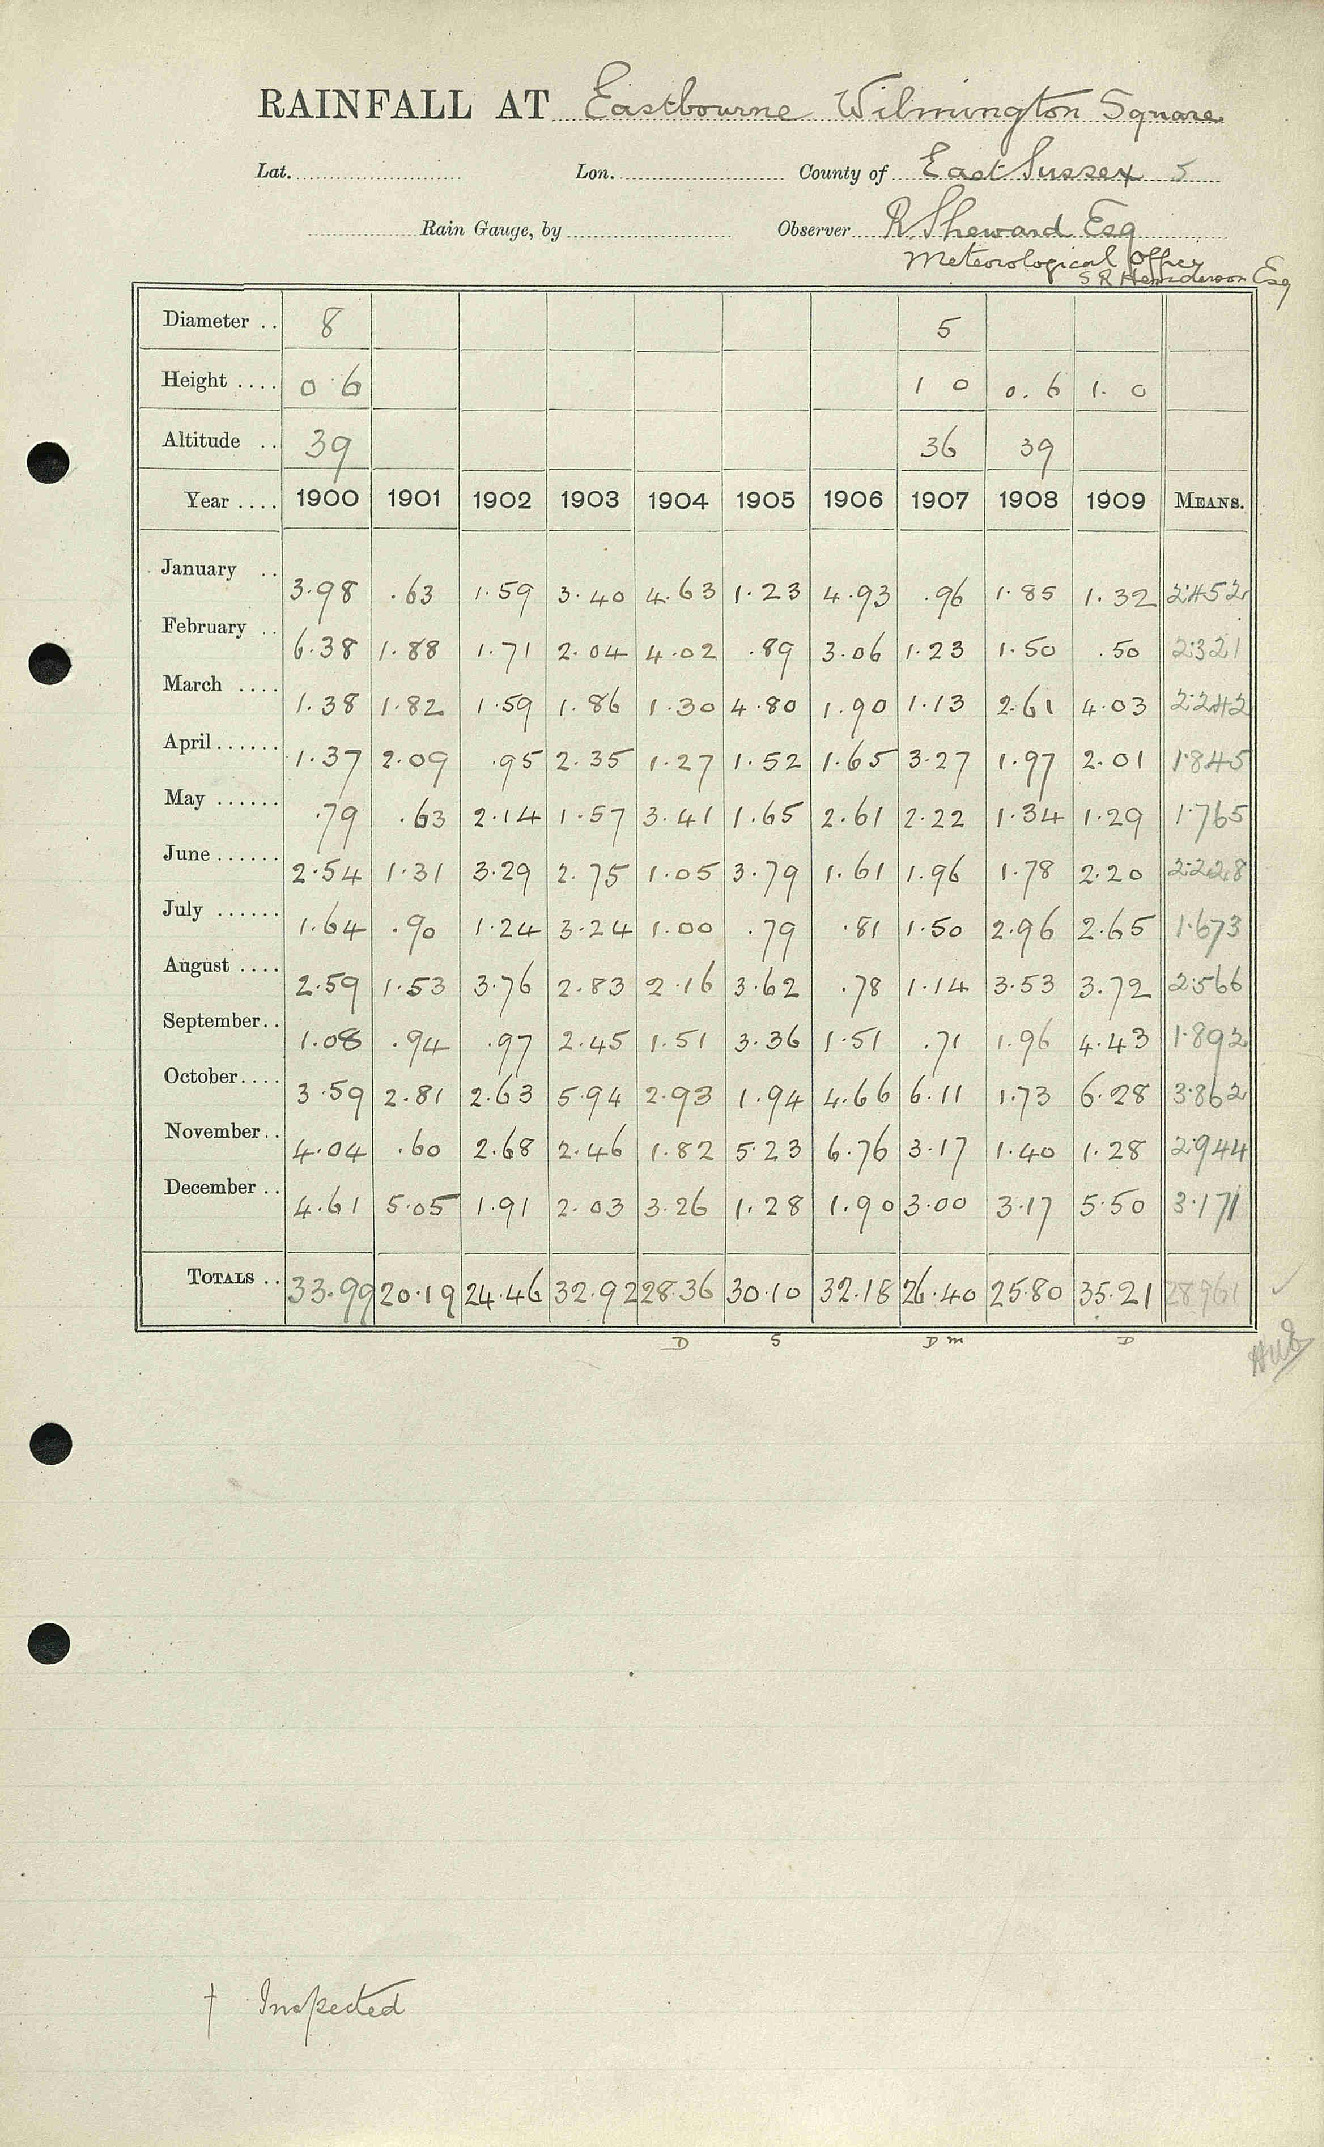 RAINFALL AT Eastbourne Wilmington Square
Lat. Lon. County of East Sussex 5
Rain Gauge, by Observer R Sheward Esq
Meteorological Office
S R Henderson Esq
Diameter .. 8 5
Height .... 0 6 1 0 0.6 1.0
Altitude .. 39 36 39
Year .... 1900 1901 1902 1903 1904 1905 1906 1907 1908 1909 MEANS.
January .. 3.98 .63 1.59 3.40 4.63 1.23 4.93 .96 1.85 1.32 2.452
February .. 6.38 1.88 1.71 2.04 4.02 .89 3.06 1.23 1.50 .50 2.321
March .... 1.38 1.82 1.59 1.86 1.30 4.80 1.90 1.13 2.61 4.03 2.242
April...... 1.37 2.09 .95 2.35 1.27 1.52 1.65 3.27 1.97 2.01 1.845
May ...... .79 .63 2.14 1.57 3.41 1.65 2.61 2.22 1.34 1.29 1.765
June...... 2.54 1.31 3.29 2.75 1.05 3.79 1.61 1.96 1.78 2.20 2.228
July ...... 1.64 .90 1.24 3.24 1.00 .79 .81 1.50 2.96 2.65 1.673
August .... 2.59 1.53 3.76 2.83 2.16 3.62 .78 1.14 3.53 3.72 2.566
September.. 1.08 .94 .97 2.45 1.51 3.36 1.51 .71 1.96 4.43 1.892
October.... 3.59 2.81 2.63 5.94 2.93 1.94 4.66 6.11 1.73 6.28 3.862
November.. 4.04 .60 2.68 2.46 1.82 5.23 6.76 3.17 1.40 1.28 2.944
December .. 4.61 5.05 1.91 2.03 3.26 1.28 1.90 3.00 3.17 5.50 3.171
TOTALS .. 33.99 20.19 24.46 32.92 28.36 30.10 32.18 26.40 25.80 35.21 28.961
D S D m D
† Inspected